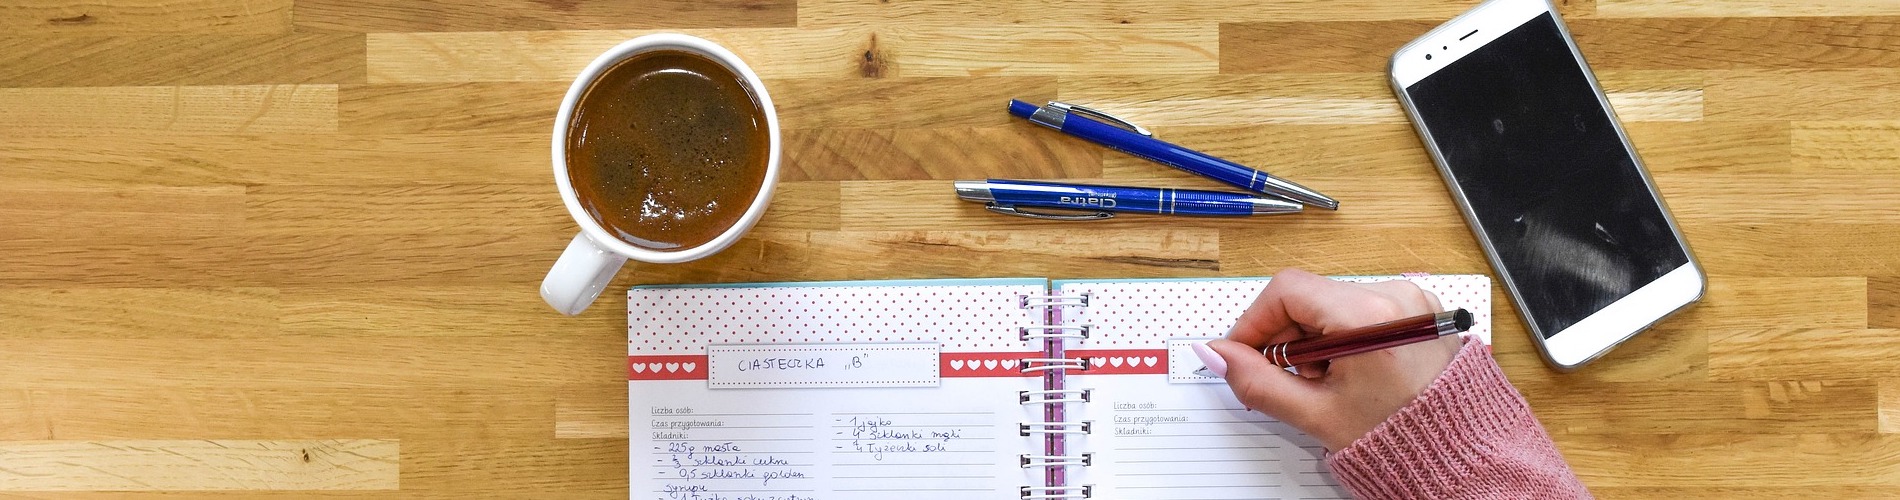 Clatra
CIASTECZKA „B”
Liczba osób:
Czas przygotowania:
Składniki:
- 225g masła
- ⅔ szklanki cukru
- 0,5 szklanki golden
syrupu
- 1 łyżka soku z cytryny
- 1 jajko
- 4 szklanki mąki
- 4 łyżeczki soli
Liczba osób:
Czas przygotowania:
Składniki: